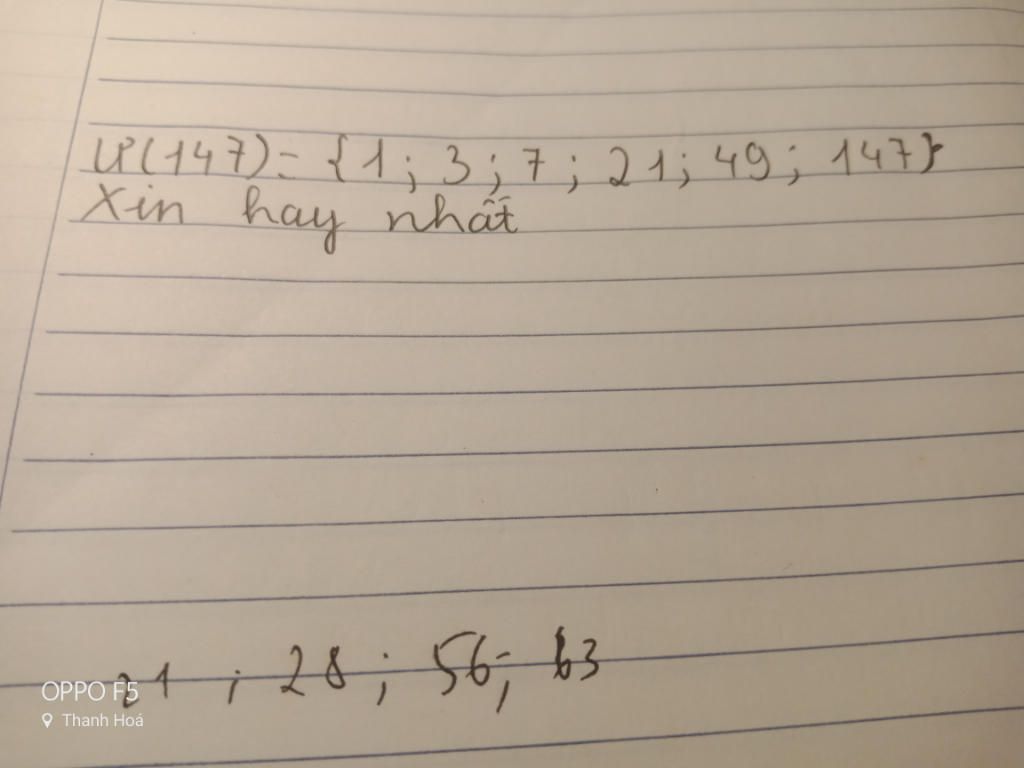 Ư(147)= {1; 3; 7; 21; 49; 147}
Xin hay nhất
21 ; 28 ; 56; 63
OPPO F5
Thanh Hoá